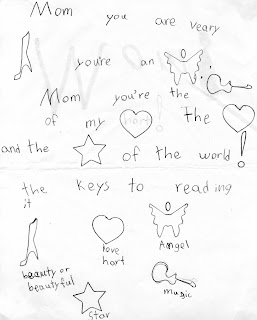 Mom you are veary
you're an !
Mom you're the
of my hart the
and the of the world !
the keys to reading
it
love
hart
Angel
beauty or
beautyful
music
Star